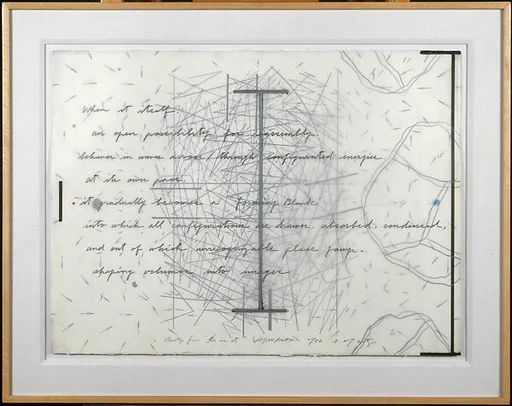 When it itself
an open possibility for assembly
behaves in waves across / through configurated energies
at its own pace
it gradually becomes a forming Blank
into which all configurations are drawn, absorbed, condensed,
and out of which unrecognizable place
shaping volumes into
study for